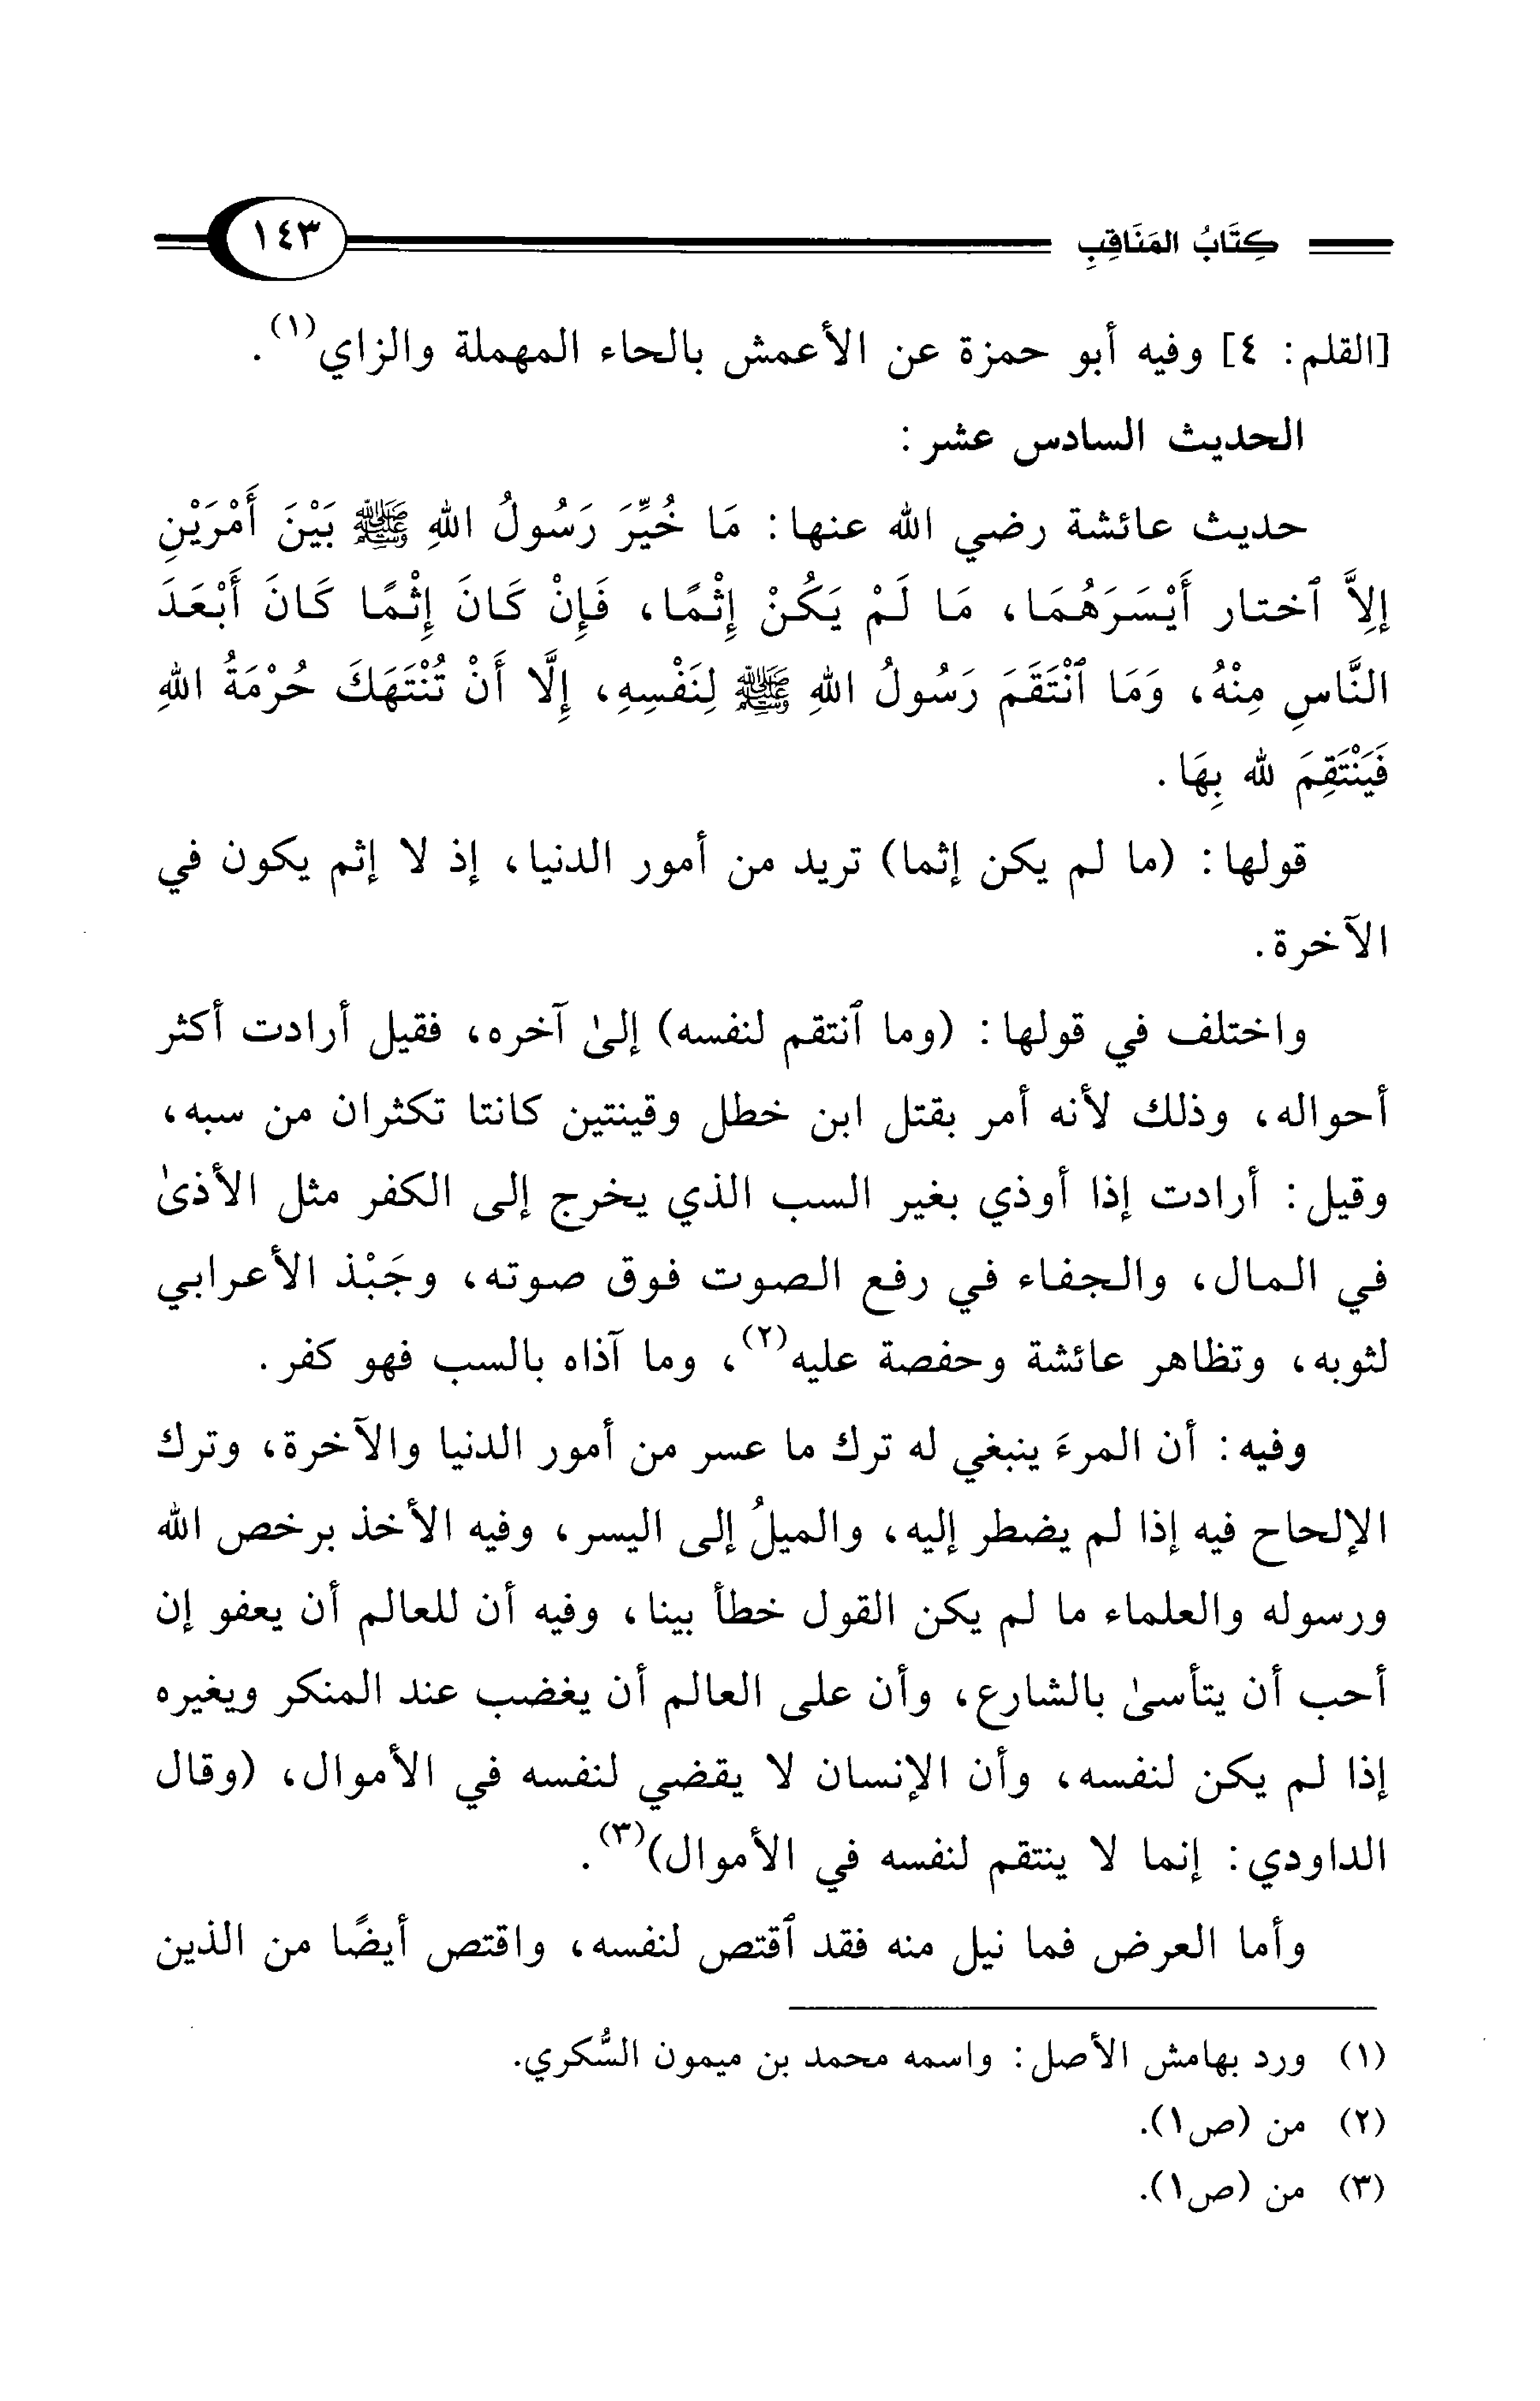 كِتَابُ المَنَاقِبِ ١٤٣
[القلم: ٤] وفيه أبو حمزة عن الأعمش بالحاء المهملة والزاي(١).
الحديث السادس عشر:
حديث عائشة رضي الله عنها: مَا خُيِّرَ رَسُولُ اللهِ ﷺ بَيْنَ أَمْرَيْنِ
إِلاَّ ٱختار أَيْسَرَهُمَا، مَا لَمْ يَكُنْ إِثْمًا، فَإِنْ كَانَ إِثْمًا كَانَ أَبْعَدَ
النَّاسِ مِنْهُ، وَمَا ٱنْتَقَمَ رَسُولُ اللهِ ﷺ لِنَفْسِهِ، إِلَّا أَنْ تُنْتَهَكَ حُرْمَةُ اللهِ
فَيَنْتَقِمَ لله بِهَا.
قولها: (ما لم يكن إثما) تريد من أمور الدنيا، إذ لا إثم يكون في
الآخرة.
واختلف في قولها: (وما ٱنتقم لنفسه) إلىٰ آخره، فقيل أرادت أكثر
أحواله، وذلك لأنه أمر بقتل ابن خطل وقينتين كانتا تكثران من سبه،
وقيل: أرادت إذا أوذي بغير السب الذي يخرج إلى الكفر مثل الأذىٰ
في المال، والجفاء في رفع الصوت فوق صوته، وجَبْذ الأعرابي
لثوبه، وتظاهر عائشة وحفصة عليه(٢)، وما آذاه بالسب فهو كفر.
وفيه: أن المرءَ ينبغي له ترك ما عسر من أمور الدنيا والآخرة، وترك
الإلحاح فيه إذا لم يضطر إليه، والميلُ إلى اليسر، وفيه الأخذ برخص الله
ورسوله والعلماء ما لم يكن القول خطأ بينا، وفيه أن للعالم أن يعفو إن
أحب أن يتأسىٰ بالشارع، وأن على العالم أن يغضب عند المنكر ويغيره
إذا لم يكن لنفسه، وأن الإنسان لا يقضي لنفسه في الأموال، (وقال
الداودي: إنما لا ينتقم لنفسه في الأموال)(٣).
وأما العرض فما نيل منه فقد ٱقتص لنفسه، واقتص أيضًا من الذين
(١) ورد بهامش الأصل: واسمه محمد بن ميمون السُّكري.
(٢) من (ص١).
(٣) من (ص١).